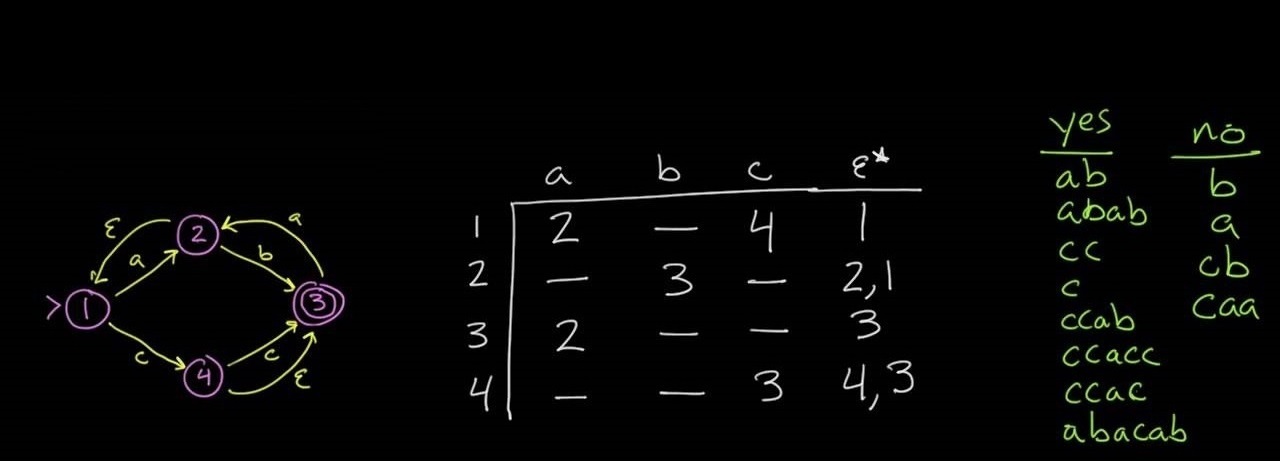 ε
a
2
b
a
> 1
3
c
4
c
ε
a b c ε*
1 2 — — 4 1
2 — 3 — 2,1
3 2 — — 3
4 — — 3 4,3
yes
ab
abab
cc
c
ccab
ccacc
ccac
abacab
no
b
a
cb
caa